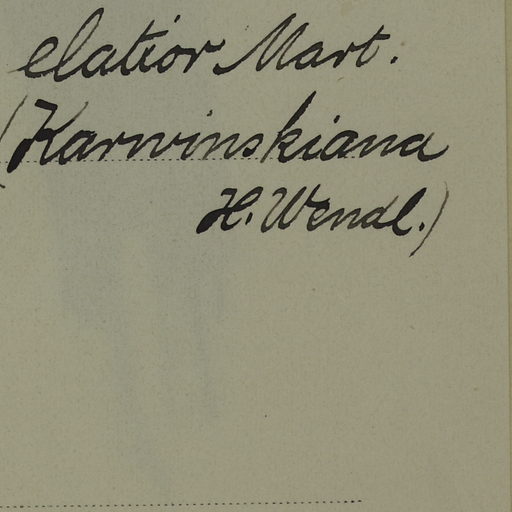 elatior Mart.
(Karwinskiana
H. Wendl.)